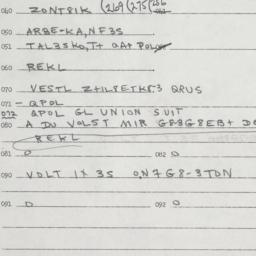 040 ZONT8IK (269(275(256
050 ARBE-KA, NF3S
051 TAL3SKO, T+ OAT POLO
060 REKL
070 VESTL Z+IL8ETK83 QRUS
071 - QPOL
072 QPOL GL UNION SUIT
080 A DU VOLST MIR G8-3G8EB+ DO
REKL
081 0 082 0
090 VOLT 1X 3S 0N7G8-3TDN
091 0 092 0